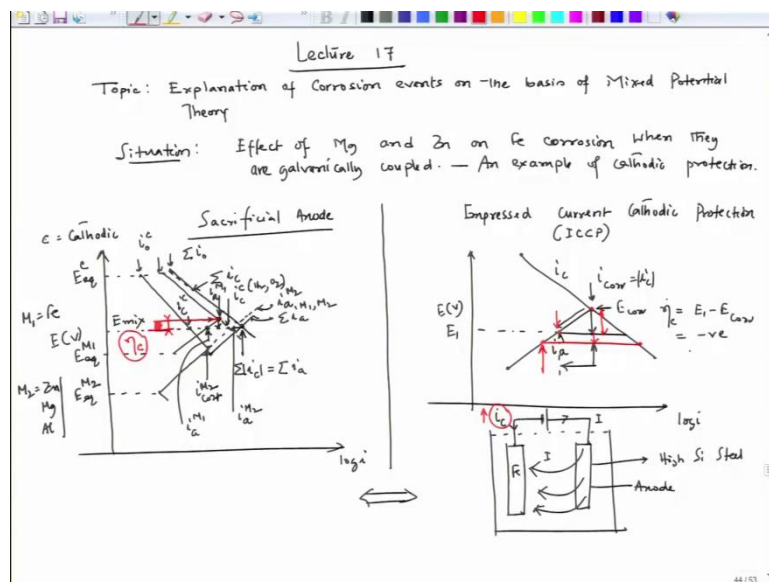 Lecture 17
Topic: Explanation of Corrosion events on the basis of Mixed Potential
Theory
Situation: Effect of Mg and Zn on Fe corrosion when they
are galvanically coupled. — An example of cathodic protection.
Sacrificial Anode
c = Cathodic
i₀ᶜ
Σi₀
Eeqᶜ
Σic
ic (H₂, O₂)
M₁ = Fe
Emix
E(V)
ηc
EeqM₁
M₂ = Zn
Mg
Al
EeqM₂
ia, M₁, M₂
Σia
Σ|ic| = Σia
icorrM₂
iaM₁
iaM₂
log i
Impressed Current Cathodic Protection
(ICCP)
ic
icorr = |ic|
E(V)
E₁
Ecorr
ηc = E₁ - Ecorr
= -ve
ia
log i
ic
I
Fe
I
High Si Steel
Anode
44/53